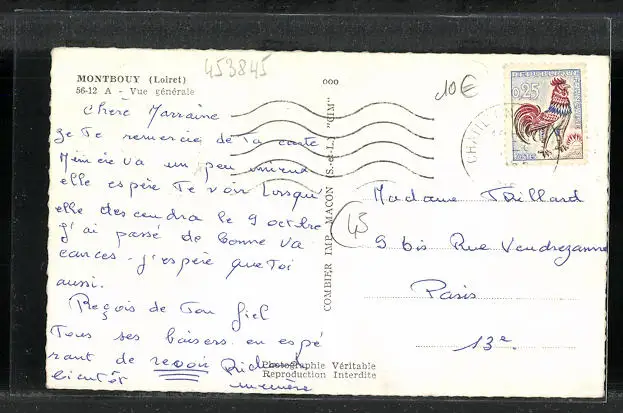 453845
MONTBOUY (Loiret)
56-12 A - Vue générale
ooo
10€
0,25
Chère Marraine
Je Te remercie de Ta carte
Mémère va un peu mieux
elle espère Te voir Lorsqu'
elle descendra le 9 octobre
j'ai passé de bonne va
cances. j'espère que Toi
aussi.
Reçois de Ton fiel
Tous ses baisers en espé
rant de revoir
bientôt
mémère
COMBIER IMP. MACON (S.-et-L.) "CIM"
45
Madame
9 bis Rue Vandrezanne
Paris
13e.
Photographie Véritable
Reproduction Interdite